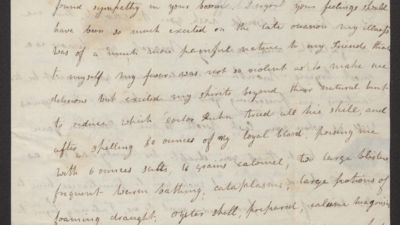 found sympathy in your bosom. I regret your feelings should
have been so much excited on the late occasion my illness
was of a much more painful nature to my friends than
to myself my fever was not so violent as to make me
delirious but excited my spirits beyond their natural tone
to reduce which Doctor Kuhn tried all his skill, and
after spilling 60 ounces of my loyal blood, poising me
with 6 ounces salts, 20 grains calomel, two large blisters
frequent warm bathing, cataplasms, large potions of
foaming draught, oyster shell, prepared, calcine magnesia